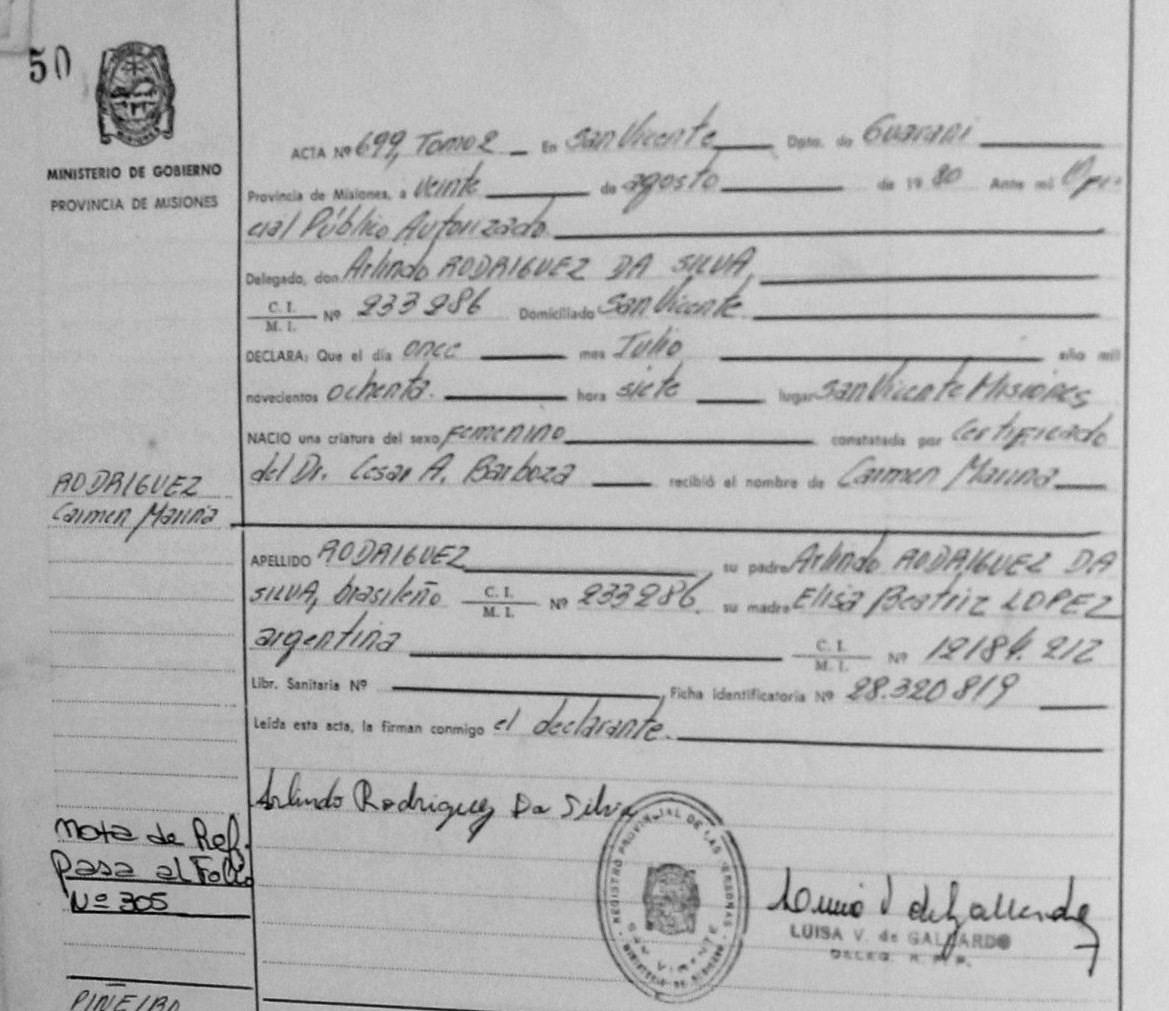 50
MINISTERIO DE GOBIERNO
PROVINCIA DE MISIONES
ACTA Nº 699, Tomo 2 En San Vicente Dpto. de Guarani
Provincia de Misiones, a veinte de agosto de 19 80 Ante mi Ofi-
cial Público Autorizado
Delegado, don Arlindo RODRIGUEZ DA SILVA,
C. I.
M. I. Nº 233286 Domiciliado San Vicente
DECLARA: Que el día once mes Julio año mil
novecientos ochenta. hora siete lugar San Vicente Misiones
NACIO una criatura del sexo femenino constatada por Certificado
del Dr. Cesar A. Barboza recibió el nombre de Carmen Marina
RODRIGUEZ
Carmen Marina
APELLIDO RODRIGUEZ, su padre Arlindo RODRIGUEZ DA
SILVA, brasileño C. I. M. I. Nº 233286. su madre Elisa Beatriz LOPEZ
argentina C. I. M. I. Nº 12184.212
Libr. Sanitaria Nº , Ficha Identificatoria Nº 28.320 819
Leída esta acta, la firman conmigo el declarante.
Arlindo Rodriguez Da Silva
Nota de Ref.
Pasa al Folio
Nº 305
REGISTRO PROVINCIAL DE LAS PERSONAS
SAN VICENTE
LUISA V. de GALLARDO
DELEG. R. P. P.
PIÑEIRO